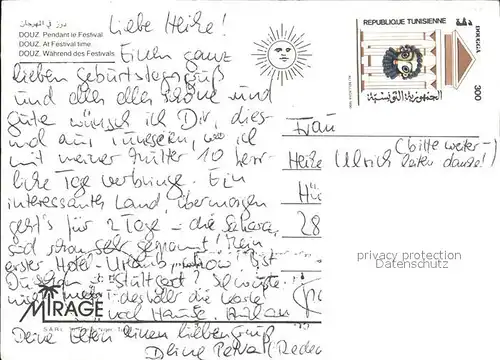 دوز في المهرجان
DOUZ. Pendant le Festival.
DOUZ. At Festival time
DOUZ. Während des Festivals
REPUBLIQUE TUNISIENNE
DOUGGA
300
الجمهورية التونسية
Liebe Heike!
Einen ganz
lieben Geburtstagsgruß
und alles alles Schöne und
gute wünsch ich Dir, dies-
mal aus Tunesien, wo ich
mit meiner Mutter 10 herr-
liche Tage verbringe. Ein
interessantes Land, übermorgen
geht's für 2 Tage in die Sahara,
sehr gespannt! Mein
erster Hotel-Urlaub
Bist
Du schon in Stuttgart?
die Karte
nach Hause.
Deine Eltern einen lieben Gruß
Deine Petra
Frau
Heike Ulrich (bitte weiter-
leiten danke!)
28
privacy protection
Datenschutz
MIRAGE